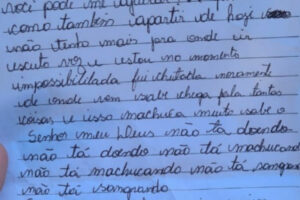 você pode me
como tambem apartir de hoji
não tenho mais pra onde ir
escuto voz e estou no momento
impossibilitada fui chutada novamente
de onde vem sabe chega pla tantas
coisas e issa machuca muito sabe o
Senhor meu Deus não tá doendo
não tá doendo não tá machucando
não tá machucando não tá sangra
não tá sangrando